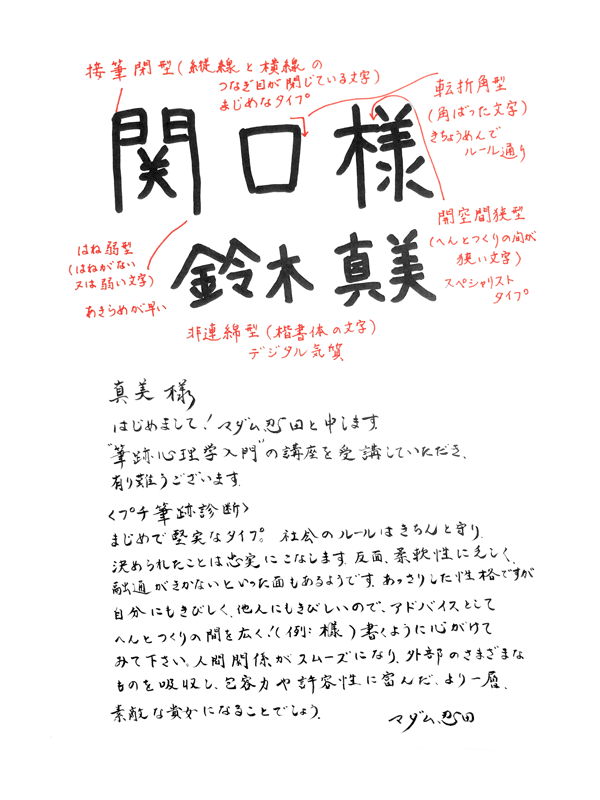 接筆閉型(縦線と横線の
つなぎ目が閉じている文字)
まじめなタイプ
転折角型
(角ばった文字)
きちょうめんで
ルール通り
関口様
開空間狭型
(へんとつくりの間が
狭い文字)
スペシャリスト
タイプ
はね弱型
(はねがない
又は弱い文字)
あきらめが早い
鈴木真美
非連綿型(楷書体の文字)
デジタル気質
真美様
はじめまして!マダム忍田と申します
"筆跡心理学入門"の講座を受講していただき、
有り難うございます。
<プチ筆跡診断>
まじめで堅実なタイプ。社会のルールはきちんと守り、
決められたことは忠実にこなします。反面、柔軟性に乏しく、
融通がきかないといった面もあるようです。あっさりした性格ですが
自分にもきびしく、他人にもきびしいので、アドバイスとして
へんとつくりの間を広く!(例:様)書くように心がけて
みて下さい。人間関係がスムーズになり、外部のさまざまな
ものを吸収し、包容力や許容性に富んだ、より一層、
素敵な貴女になることでしょう。
マダム忍田